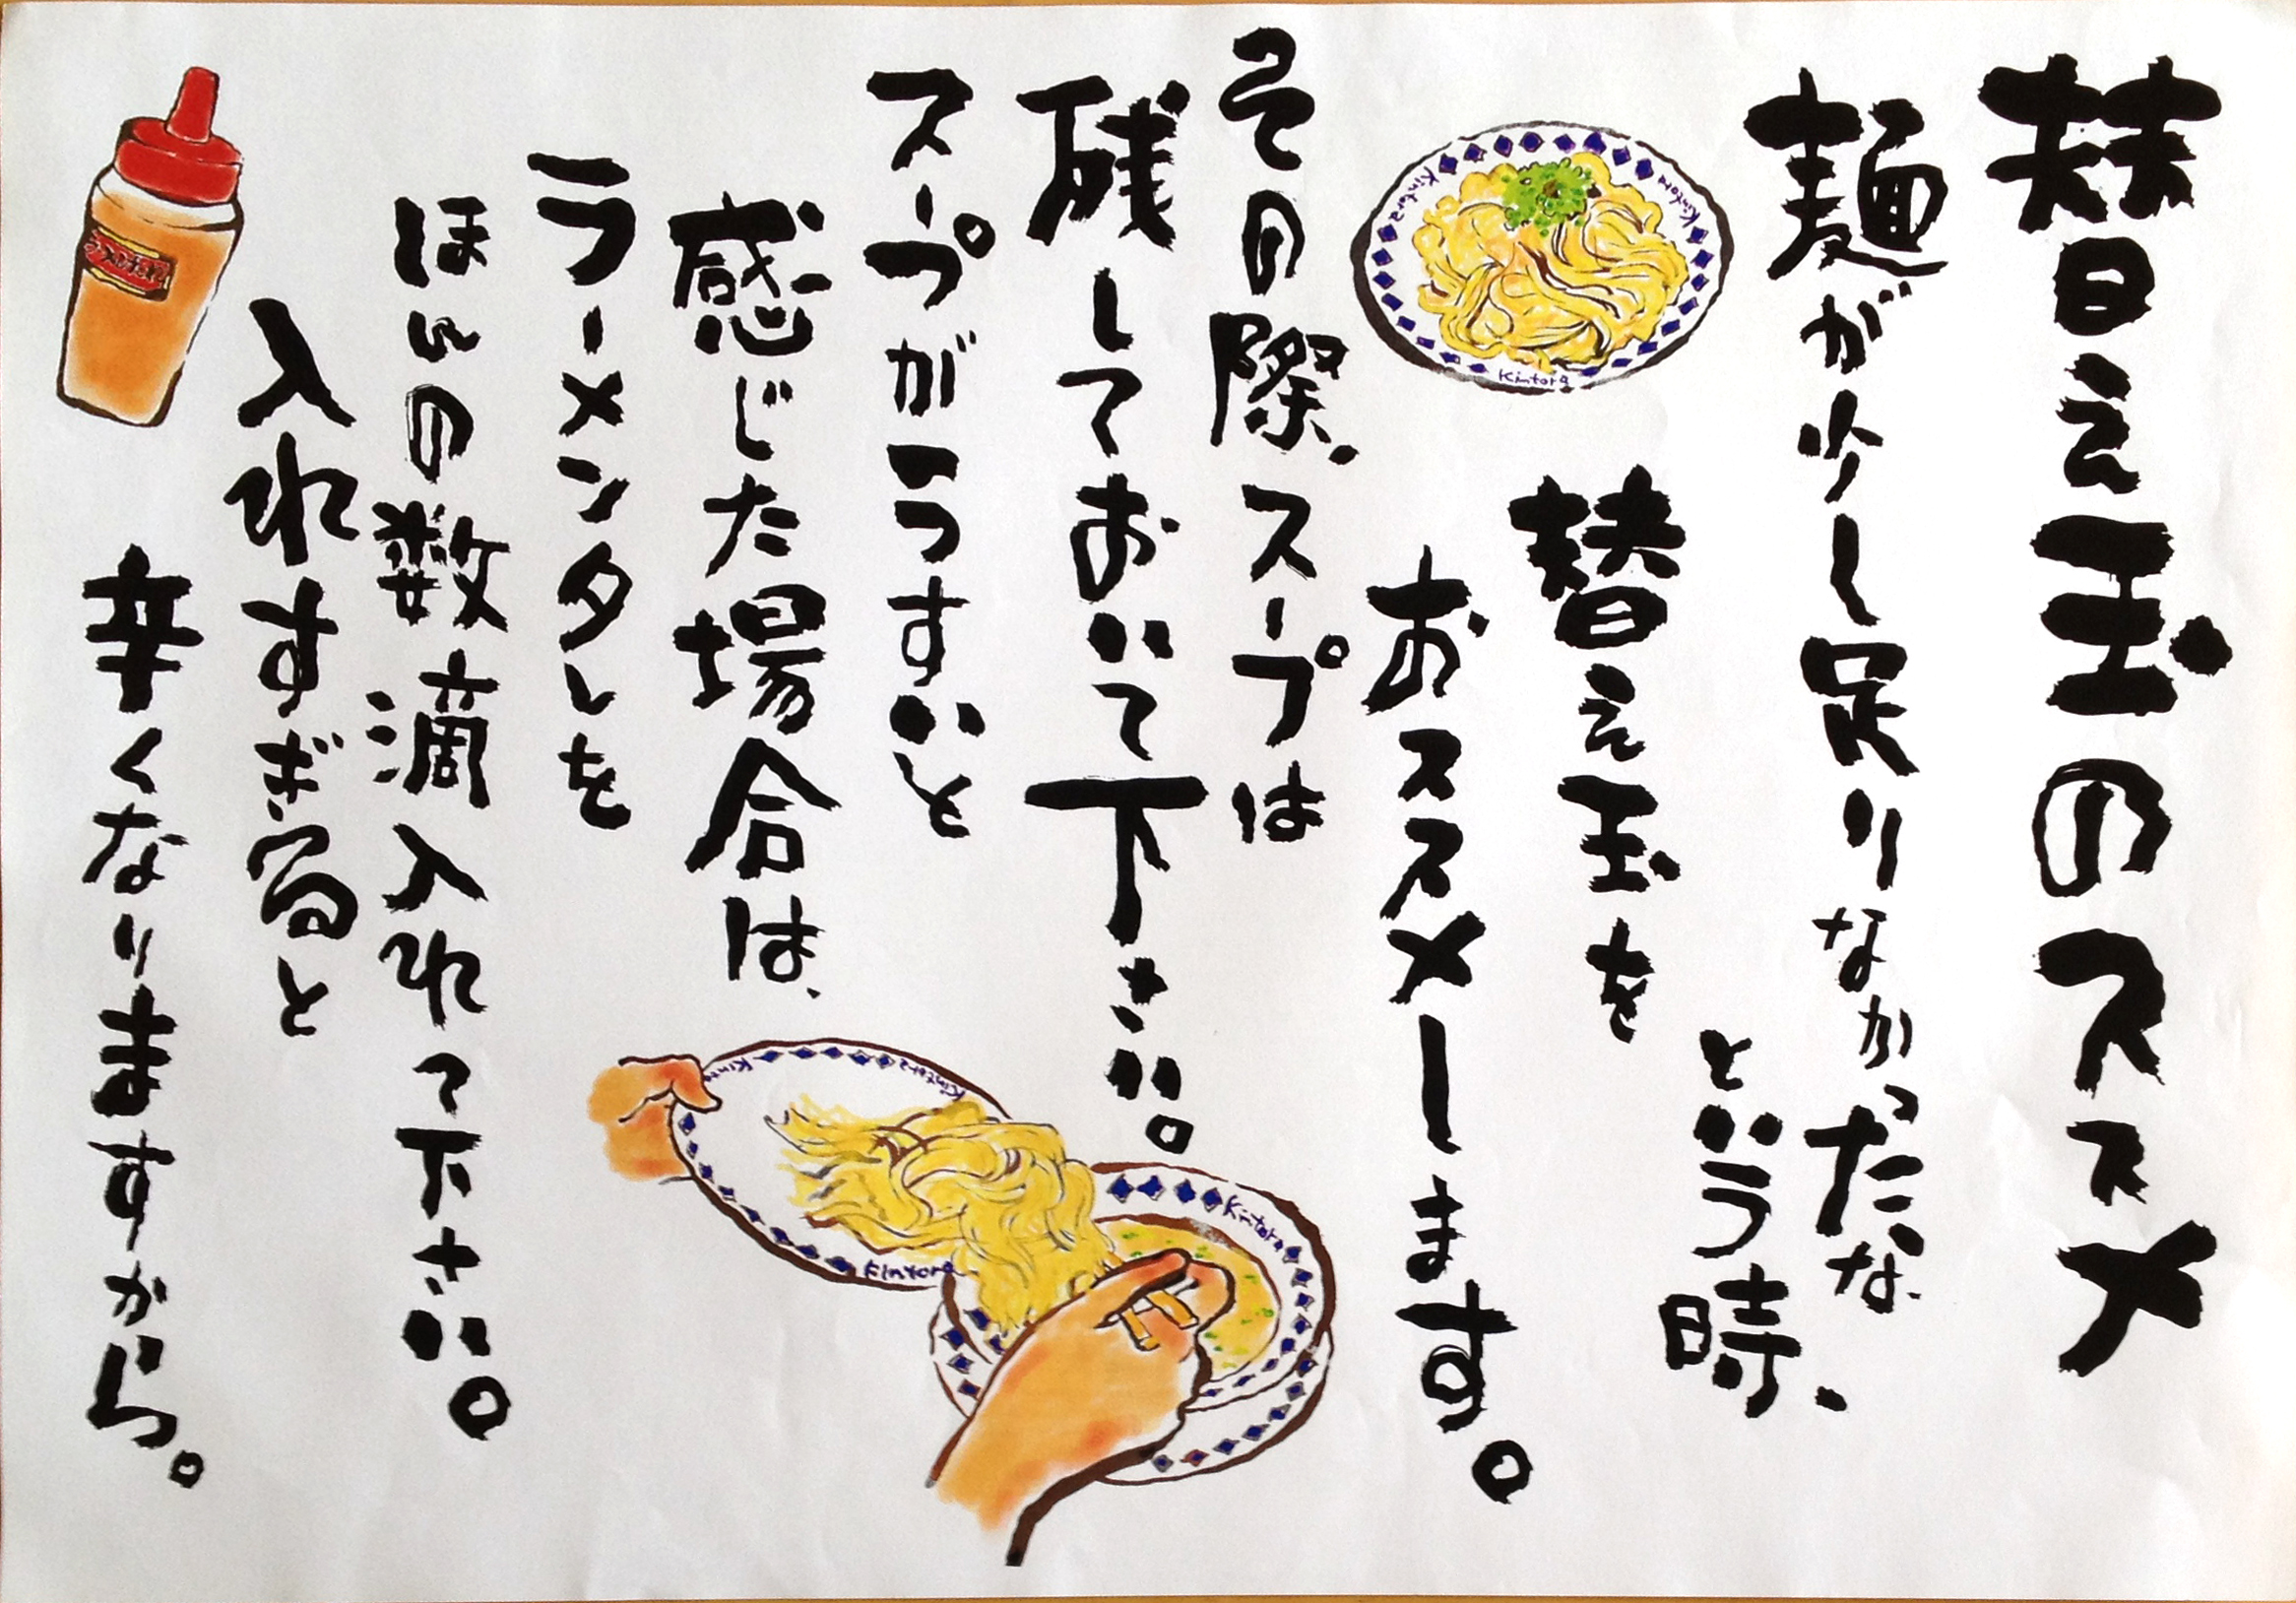 替え玉のススメ
麺が少し足りなかったな、
という時、
替え玉を
おススメします。
その際、スープは
残しておいて下さい。
スープがうすいと
感じた場合は、
ラーメンタレを
ほんの数滴入れて下さい。
入れすぎると
辛くなりますから。
Kintora
Kintora
Kintora
Kintora
Kintora
Kintora
Kintora
ラーメンのたれ